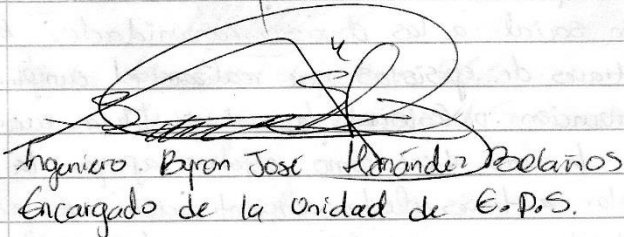 Ingeniero Byron José Hernández Bolaños
Encargado de la Unidad de E.P.S.